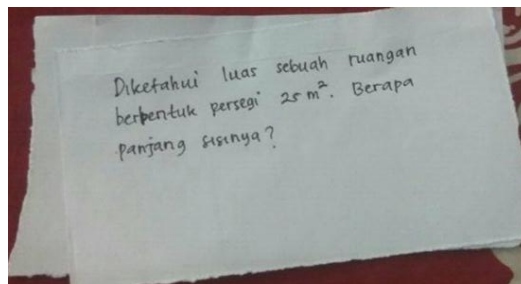 Diketahui luas sebuah ruangan
berbentuk persegi 25 m². Berapa
panjang sisinya?